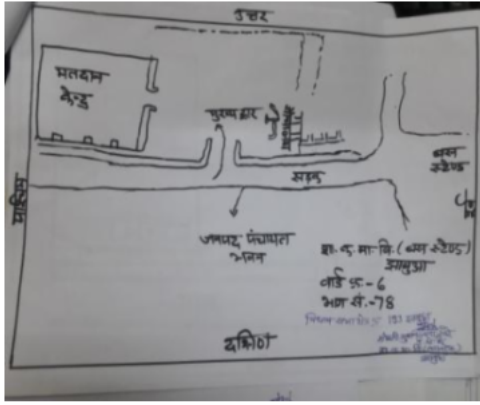 उत्तर
मतदान
केन्द्र
मुख्य द्वार
बस
स्टैण्ड
सड़क
पश्चिम
जनपद पंचायत
भवन
शा. क. मा. वि. (बस स्टैण्ड)
झाबुआ
वार्ड क्र.-6
भाग सं.-78
दक्षिण